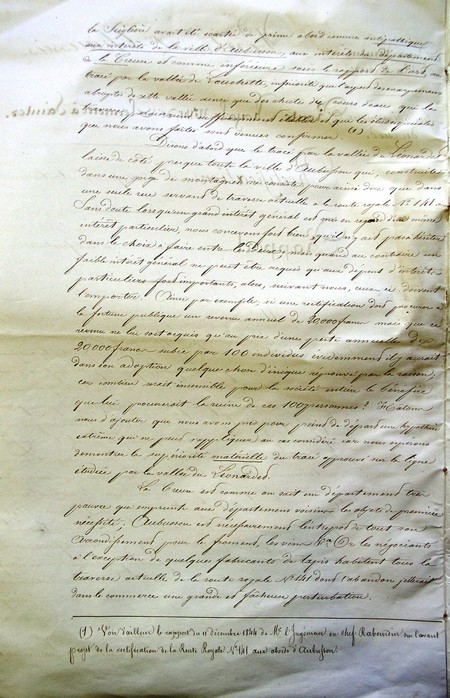 la Seiglière ayant été écartée de prime abord comme antipathique
aux intérêts de la ville d'Aubusson, aux intérêts du département
de la Creuse et comme inférieure sous le rapport de l'art, au
tracé par la vallée de
abrupte de cette vallée ainsi que des
que nous avons faites sont venues confirmer (1)
Disons d'abord que le tracé par la vallée du Léonardet
laisse de côté presque toute la ville d'Aubusson qui, construite
dans une gorge de montagnes ne consiste pour ainsi dire que dans
une seule rue servant de traverse actuelle à la route royale N° 141.
Sans doute lorsqu'un grand intérêt général est mis en regard d'un mince
intérêt particulier, nous concevons fort bien qu'il n'y ait pas à hésiter
dans le choix à faire entre les deux; mais quand au contraire un
faible intérêt général ne peut être acquis qu'aux dépens d'intérêts
particuliers fort importants, alors, suivant nous, ceux-ci doivent
l'emporter. Ainsi par exemple, si une rectification doit procurer à
la fortune publique un revenu annuel de 20,000 francs mais que ce
revenu ne lui soit acquis qu'au prix d'une perte annuelle de
20,000 francs subie par 100 individus évidemment il y aurait
dans son adoption quelque chose d'inique réprouvé par la raison;
car combien serait insensible pour la société entière le bénéfice
que lui procurerait la ruine de ces 100 personnes? Hâtons
nous d'ajouter que nous avons pris pour point de départ une hypothèse
extrême qui ne peut s'appliquer au cas considéré car nous espérons
démontrer la supériorité matérielle du tracé approuvé sur la ligne
étudiée par la vallée du Léonardet.
La Creuse est comme on sait un département très
pauvre qui emprunte aux départements voisins les objets de première
nécessité; Aubusson est nécessairement l'entrepôt de tout son
arrondissement pour le froment, les vins &a. Or les négociants
à l'exception de quelques fabricants de tapis habitent tous la
traverse actuelle de la route royale N° 141 dont l'abandon jetterait
dans le commerce une grande et fâcheuse perturbation.
(1) Voir d'ailleurs le rapport du 11 décembre 1844 de Mr l'Ingénieur en chef sur l'avant
projet de la rectification de la Route Royale N° 141 aux abords d'Aubusson.